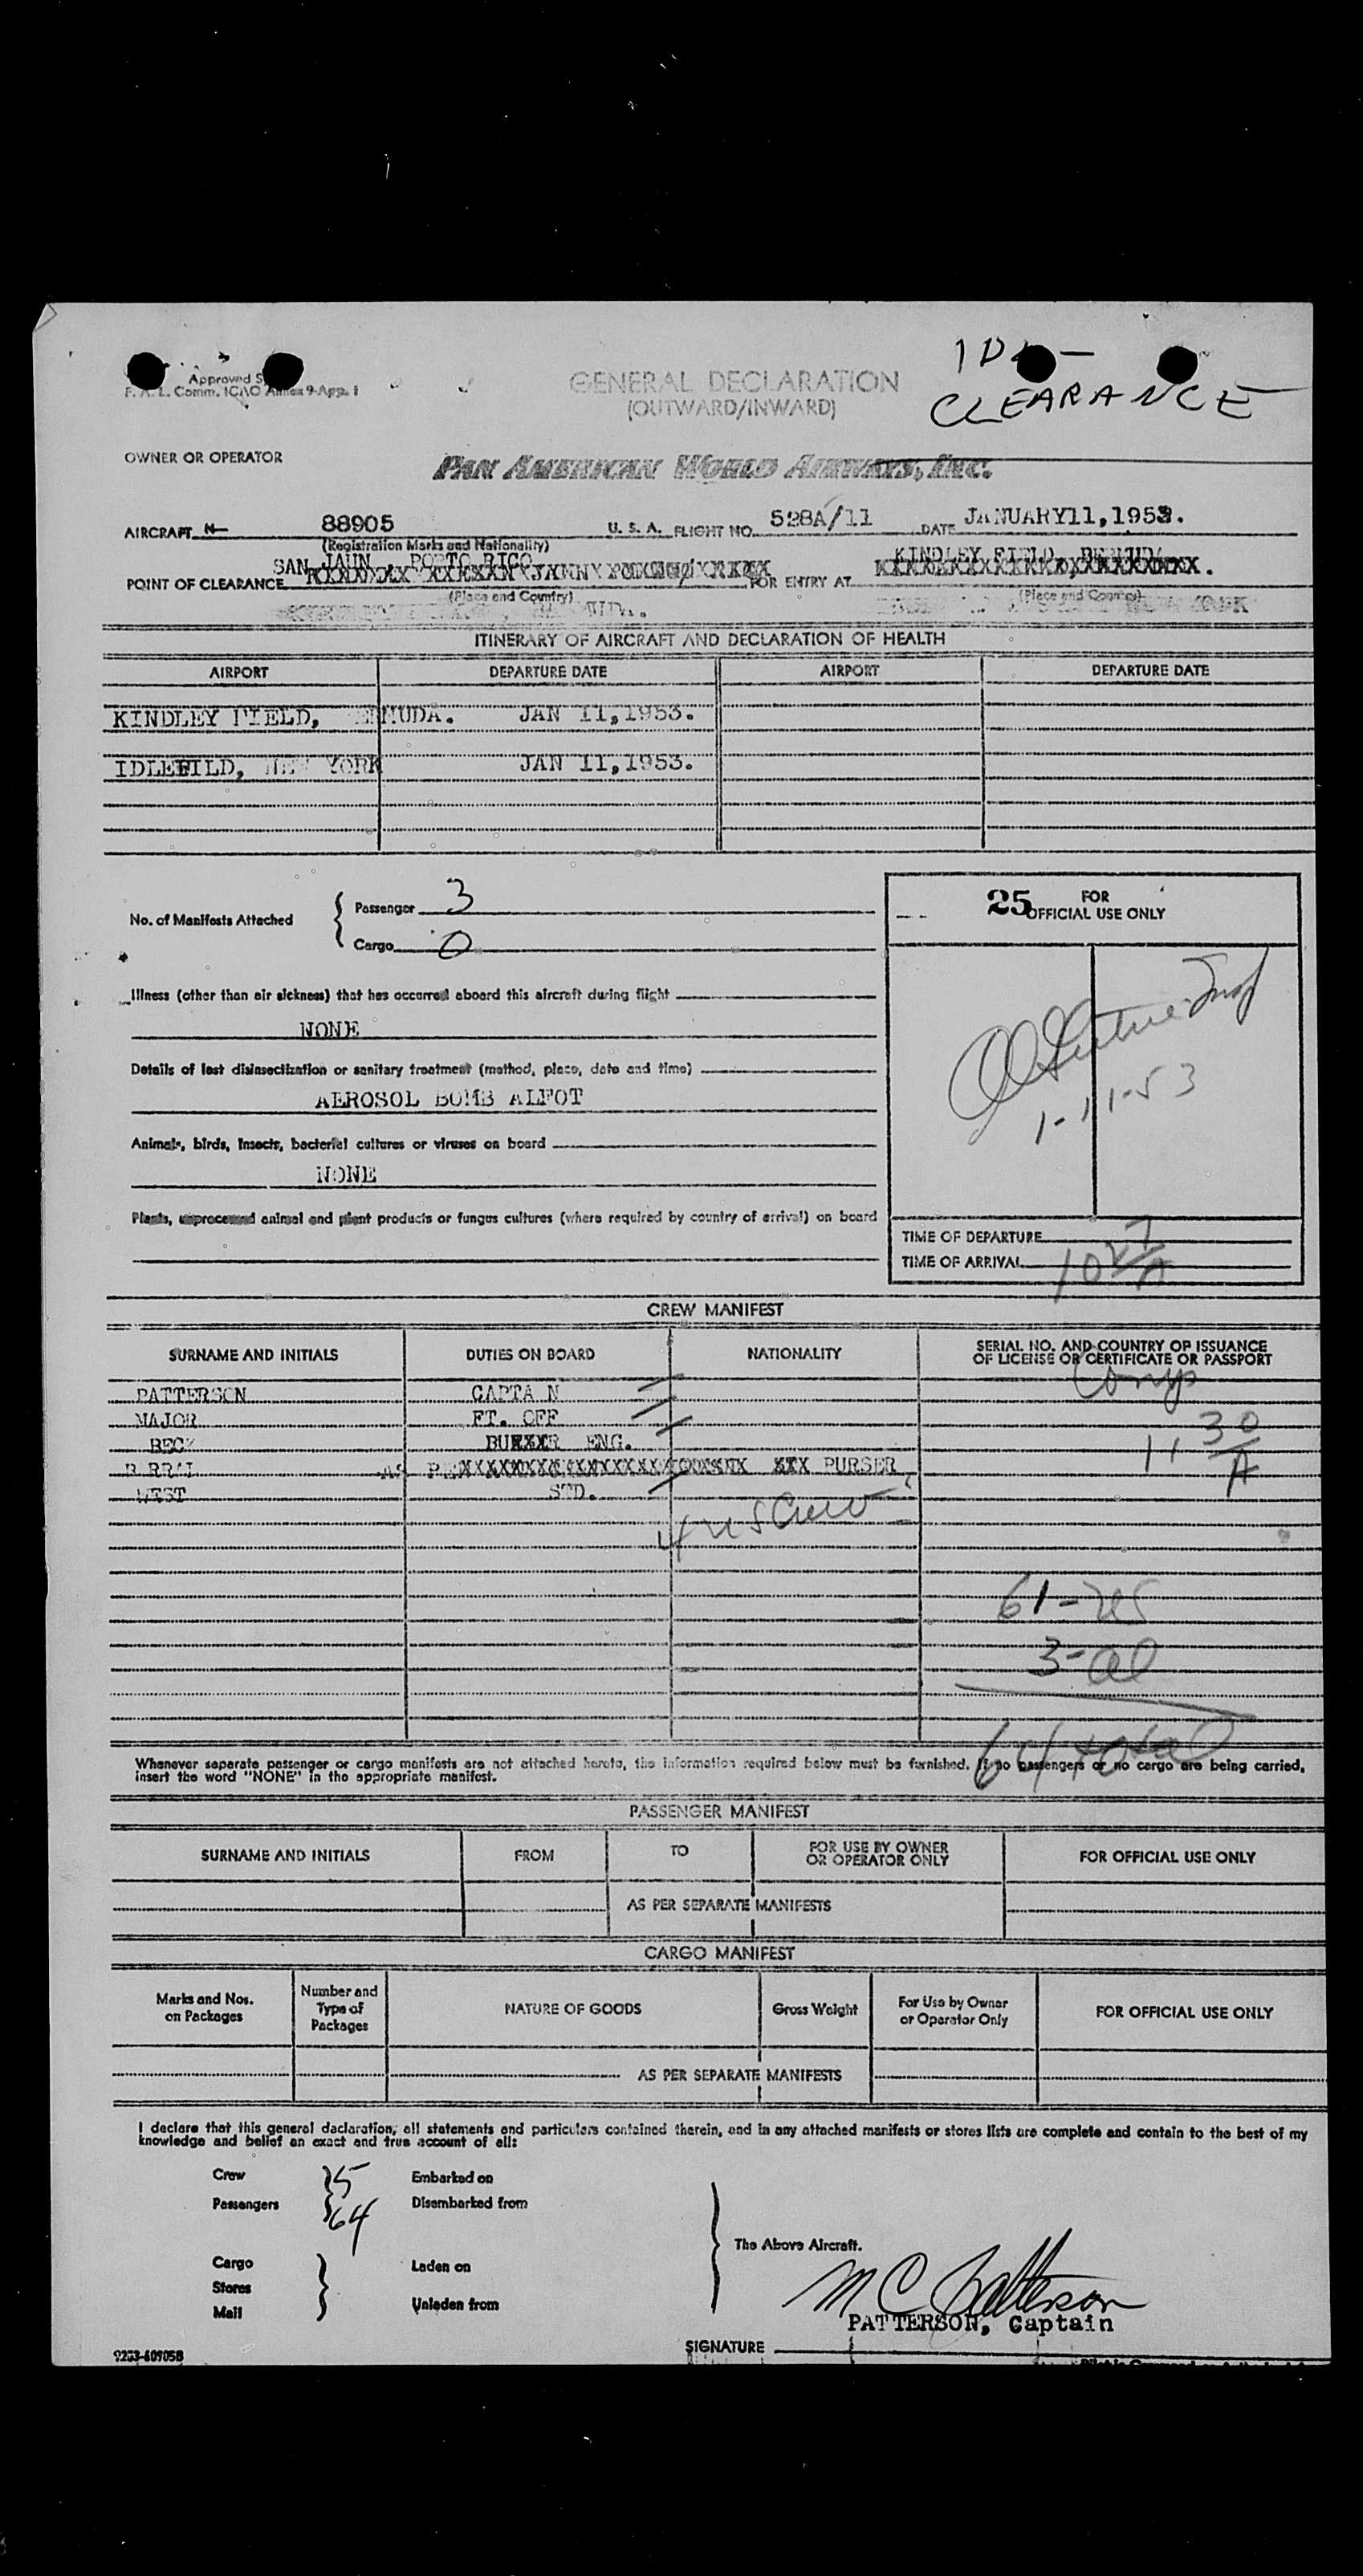 CLEARANCE
Approved
F. A. L. Comm. ICAO Annex 9-App. 1
GENERAL DECLARATION
(OUTWARD/INWARD)
OWNER OR OPERATOR
PAN AMERICAN WORLD AIRWAYS, INC.
AIRCRAFT N 88905 U. S. A. FLIGHT NO. 528A/11 DATE JANUARY11,1953.
(Registration Marks and Nationality)
SAN JAUN, PORTO RICO KINDLEY FIELD, BERMUDA
POINT OF CLEARANCE FOR ENTRY AT
(Place and Country) (Place and Country)
ITINERARY OF AIRCRAFT AND DECLARATION OF HEALTH
AIRPORT DEPARTURE DATE AIRPORT DEPARTURE DATE
KINDLEY FIELD, BERMUDA. JAN 11,1953.
IDLEFILD, NEW YORK JAN 11,1953.
No. of Manifests Attached
Passenger 3
Cargo 0
25 FOR
OFFICIAL USE ONLY
1-11-53
Illness (other than air sickness) that has occurred aboard this aircraft during flight
NONE
Details of last disinsectization or sanitary treatment (method, place, date and time)
AEROSOL BOMB ALFOT
Animals, birds, insects, bacterial cultures or viruses on board
NONE
Plants, unprocessed animal and plant products or fungus cultures (where required by country of arrival) on board
TIME OF DEPARTURE
TIME OF ARRIVAL 10 27/A
CREW MANIFEST
SURNAME AND INITIALS DUTIES ON BOARD NATIONALITY SERIAL NO. AND COUNTRY OF ISSUANCE
OF LICENSE OR CERTIFICATE OR PASSPORT
Comp
PATTERSON CAPTA N
MAJOR FT. OFF
BECK ENG.
11 30/A
PURSER
WEST STD.
4 US Crew
61-US
3-al
64 total
Whenever separate passenger or cargo manifests are not attached hereto, the information required below must be furnished. If no passengers or no cargo are being carried,
insert the word "NONE" in the appropriate manifest.
PASSENGER MANIFEST
SURNAME AND INITIALS FROM TO FOR USE BY OWNER
OR OPERATOR ONLY FOR OFFICIAL USE ONLY
AS PER SEPARATE MANIFESTS
CARGO MANIFEST
Marks and Nos.
on Packages Number and
Type of
Packages NATURE OF GOODS Gross Weight For Use by Owner
or Operator Only FOR OFFICIAL USE ONLY
AS PER SEPARATE MANIFESTS
I declare that this general declaration, all statements and particulars contained therein, and in any attached manifests or stores lists are complete and contain to the best of my
knowledge and belief an exact and true account of all:
Crew 5 Embarked on
Passengers 64 Disembarked from
The Above Aircraft.
Cargo Laden on
Stores
Mail Unladen from
M C Patterson
PATTERSON, Captain
SIGNATURE
9233-60905B